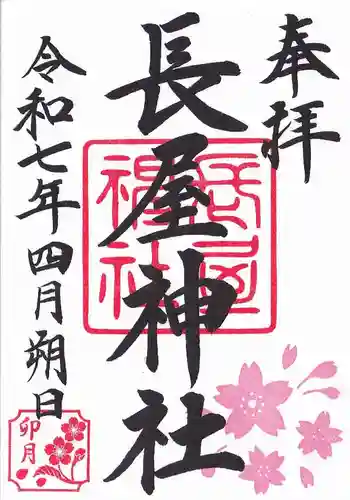 奉拝
長屋神社
令和七年四月朔日
卯月